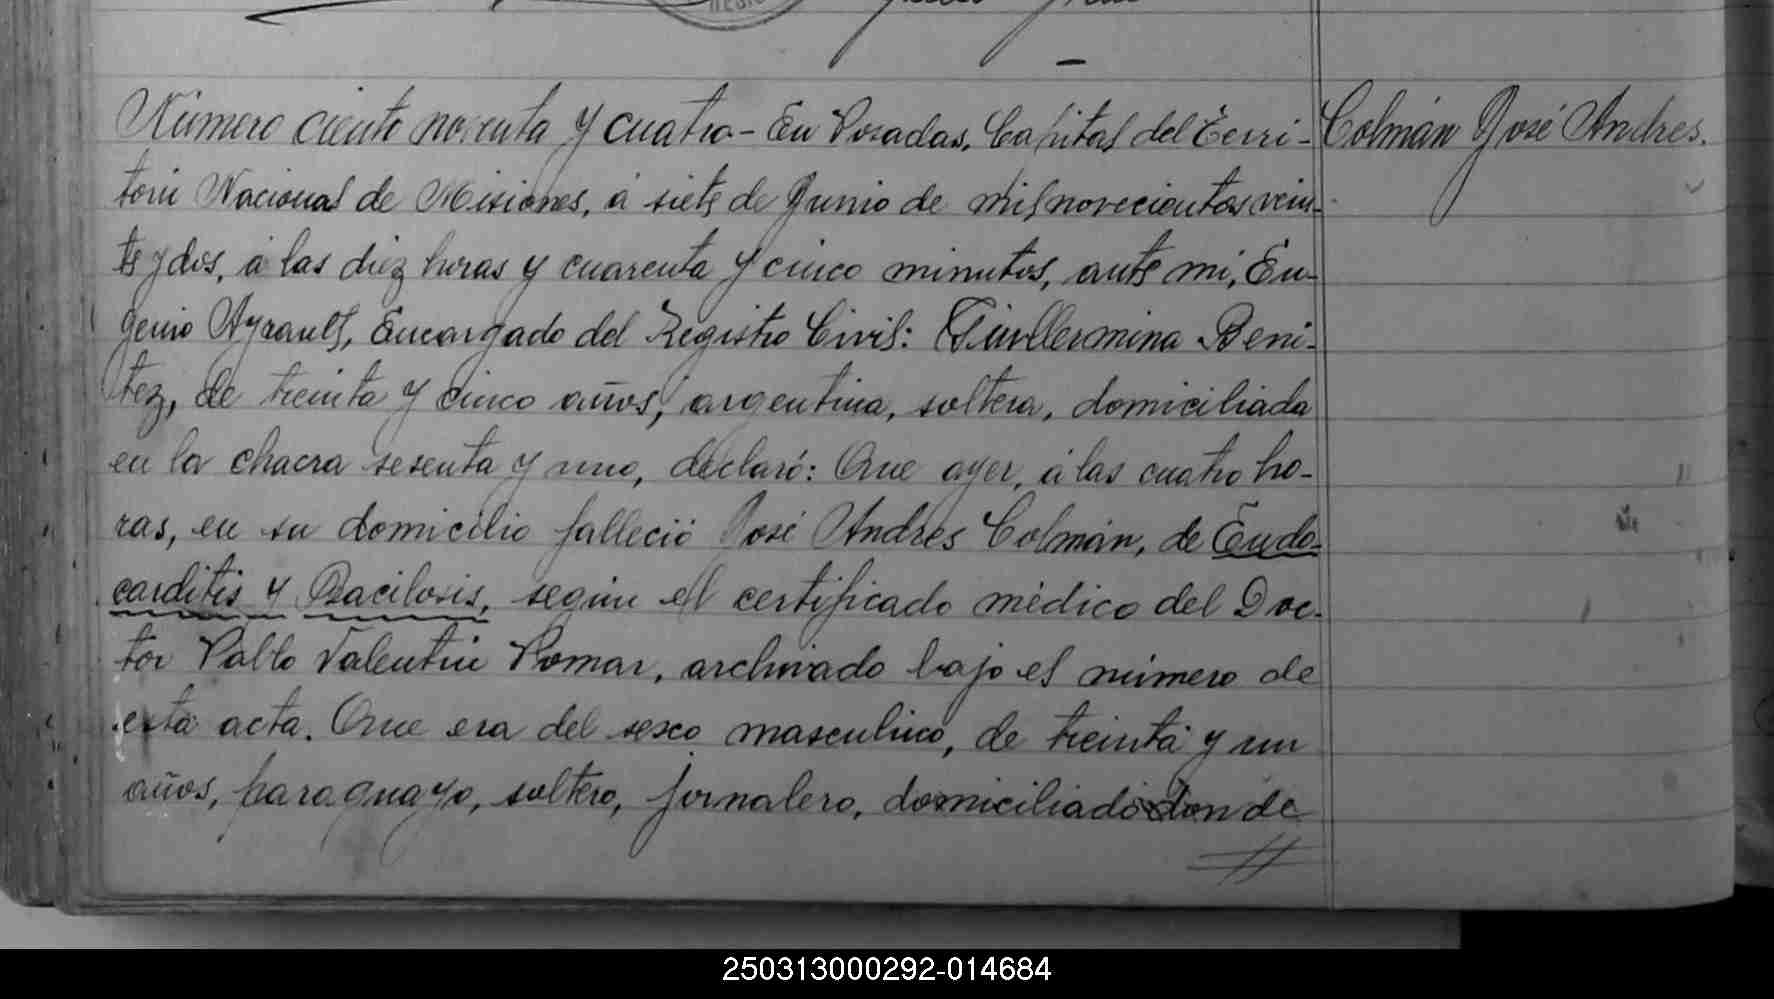 Número ciento noventa y cuatro - En Posadas, Capital del Terri-
Colmán José Andres.
torio Nacional de Misiones, á siete de Junio de mil novecientos vein-
te y dos, á las diez horas y cuarenta y cinco minutos, ante mi, Eu-
genio Ayrault, Encargado del Registro Civil: Guillermina Beni-
tez, de treinta y cinco años, argentina, soltera, domiciliada
en la chacra sesenta y uno, declaró: Que ayer, á las cuatro ho-
ras, en su domicilio falleció José Andres Colmán, de Endo-
carditis y Bacilosis, según el certificado médico del Doc-
tor Pablo Valentin Pomar, archivado bajo el número de
esta acta. Que era del sexo masculino, de treinta y un
años, paraguayo, soltero, jornalero, domiciliado donde
250313000292-014684